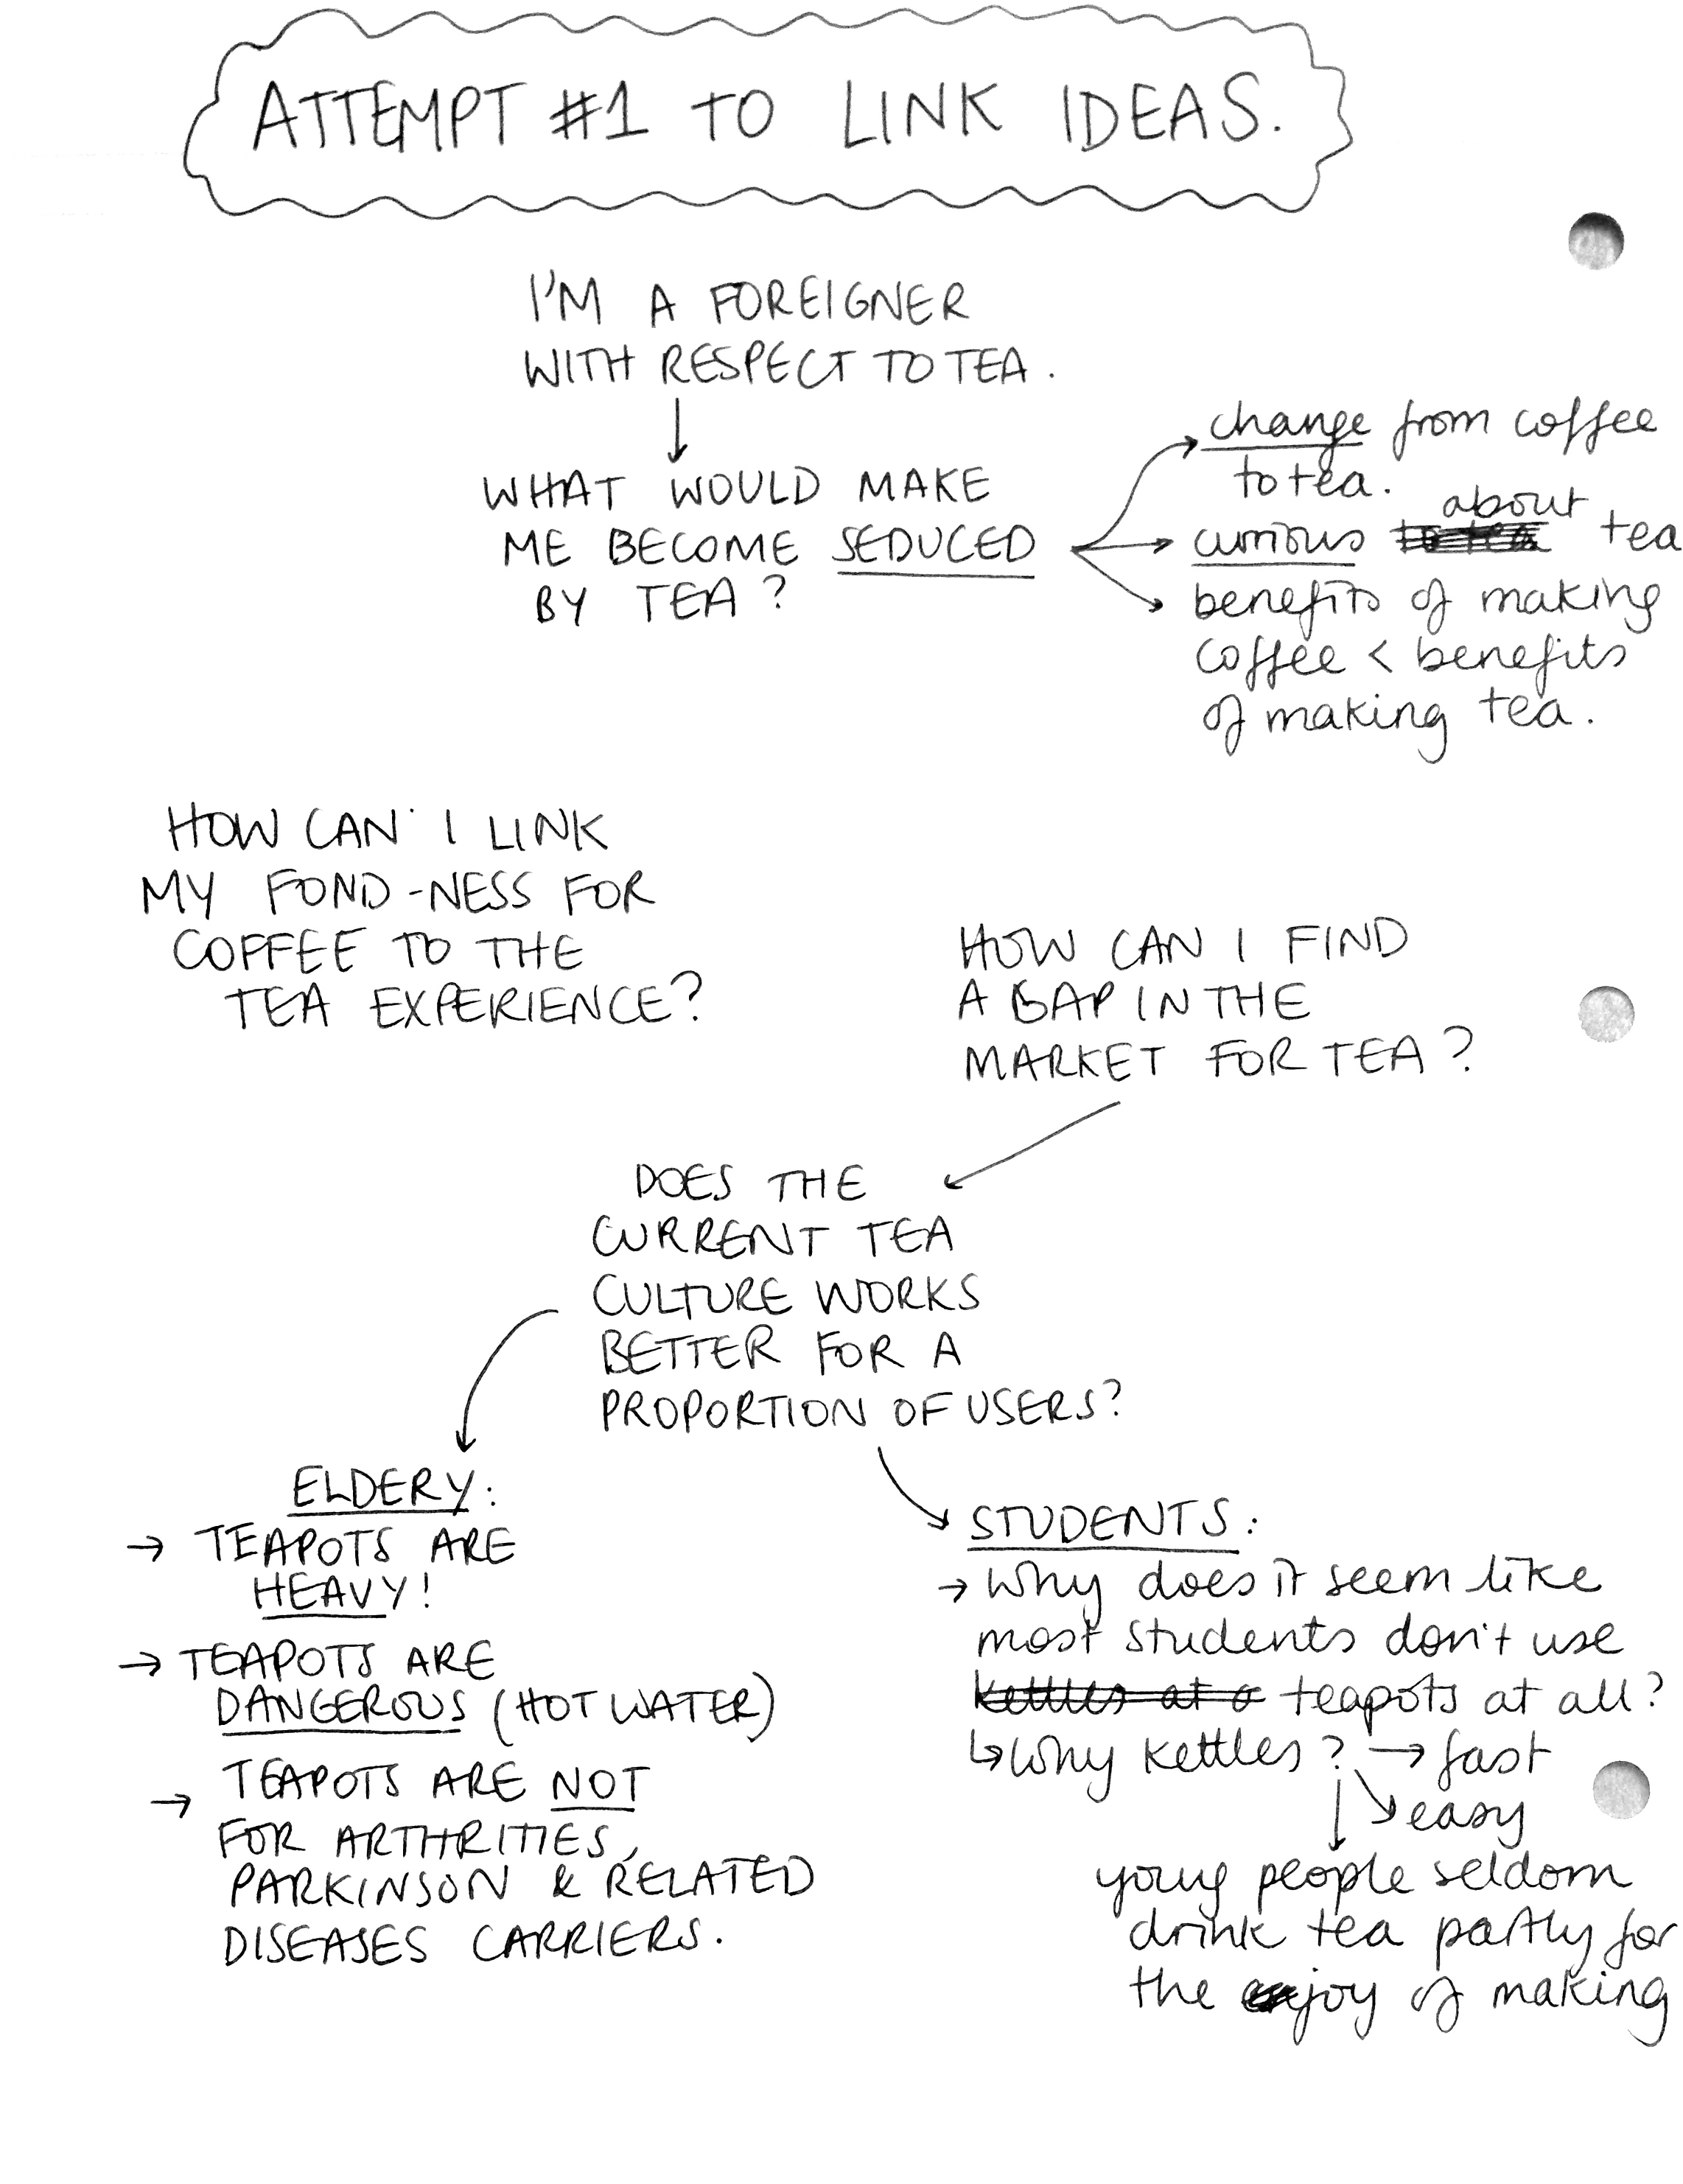 ATTEMPT #1 TO LINK IDEAS.
I'M A FOREIGNER
WITH RESPECT TO TEA.
WHAT WOULD MAKE
ME BECOME SEDUCED
BY TEA?
change from coffee
to tea.
about
curious to tea tea
benefits of making
coffee < benefits
of making tea.
HOW CAN I LINK
MY FOND-NESS FOR
COFFEE TO THE
TEA EXPERIENCE?
HOW CAN I FIND
A GAP IN THE
MARKET FOR TEA?
DOES THE
CURRENT TEA
CULTURE WORKS
BETTER FOR A
PROPORTION OF USERS?
ELDERY:
→ TEAPOTS ARE
HEAVY!
→ TEAPOTS ARE
DANGEROUS (HOT WATER)
→ TEAPOTS ARE NOT
FOR ARTHRITIES,
PARKINSON & RELATED
DISEASES CARRIERS.
STUDENTS:
→ Why does it seem like
most students don't use
kettles at a teapots at all?
↳ Why kettles? → fast
↘ easy
young people seldom
drink tea partly for
the joy of making